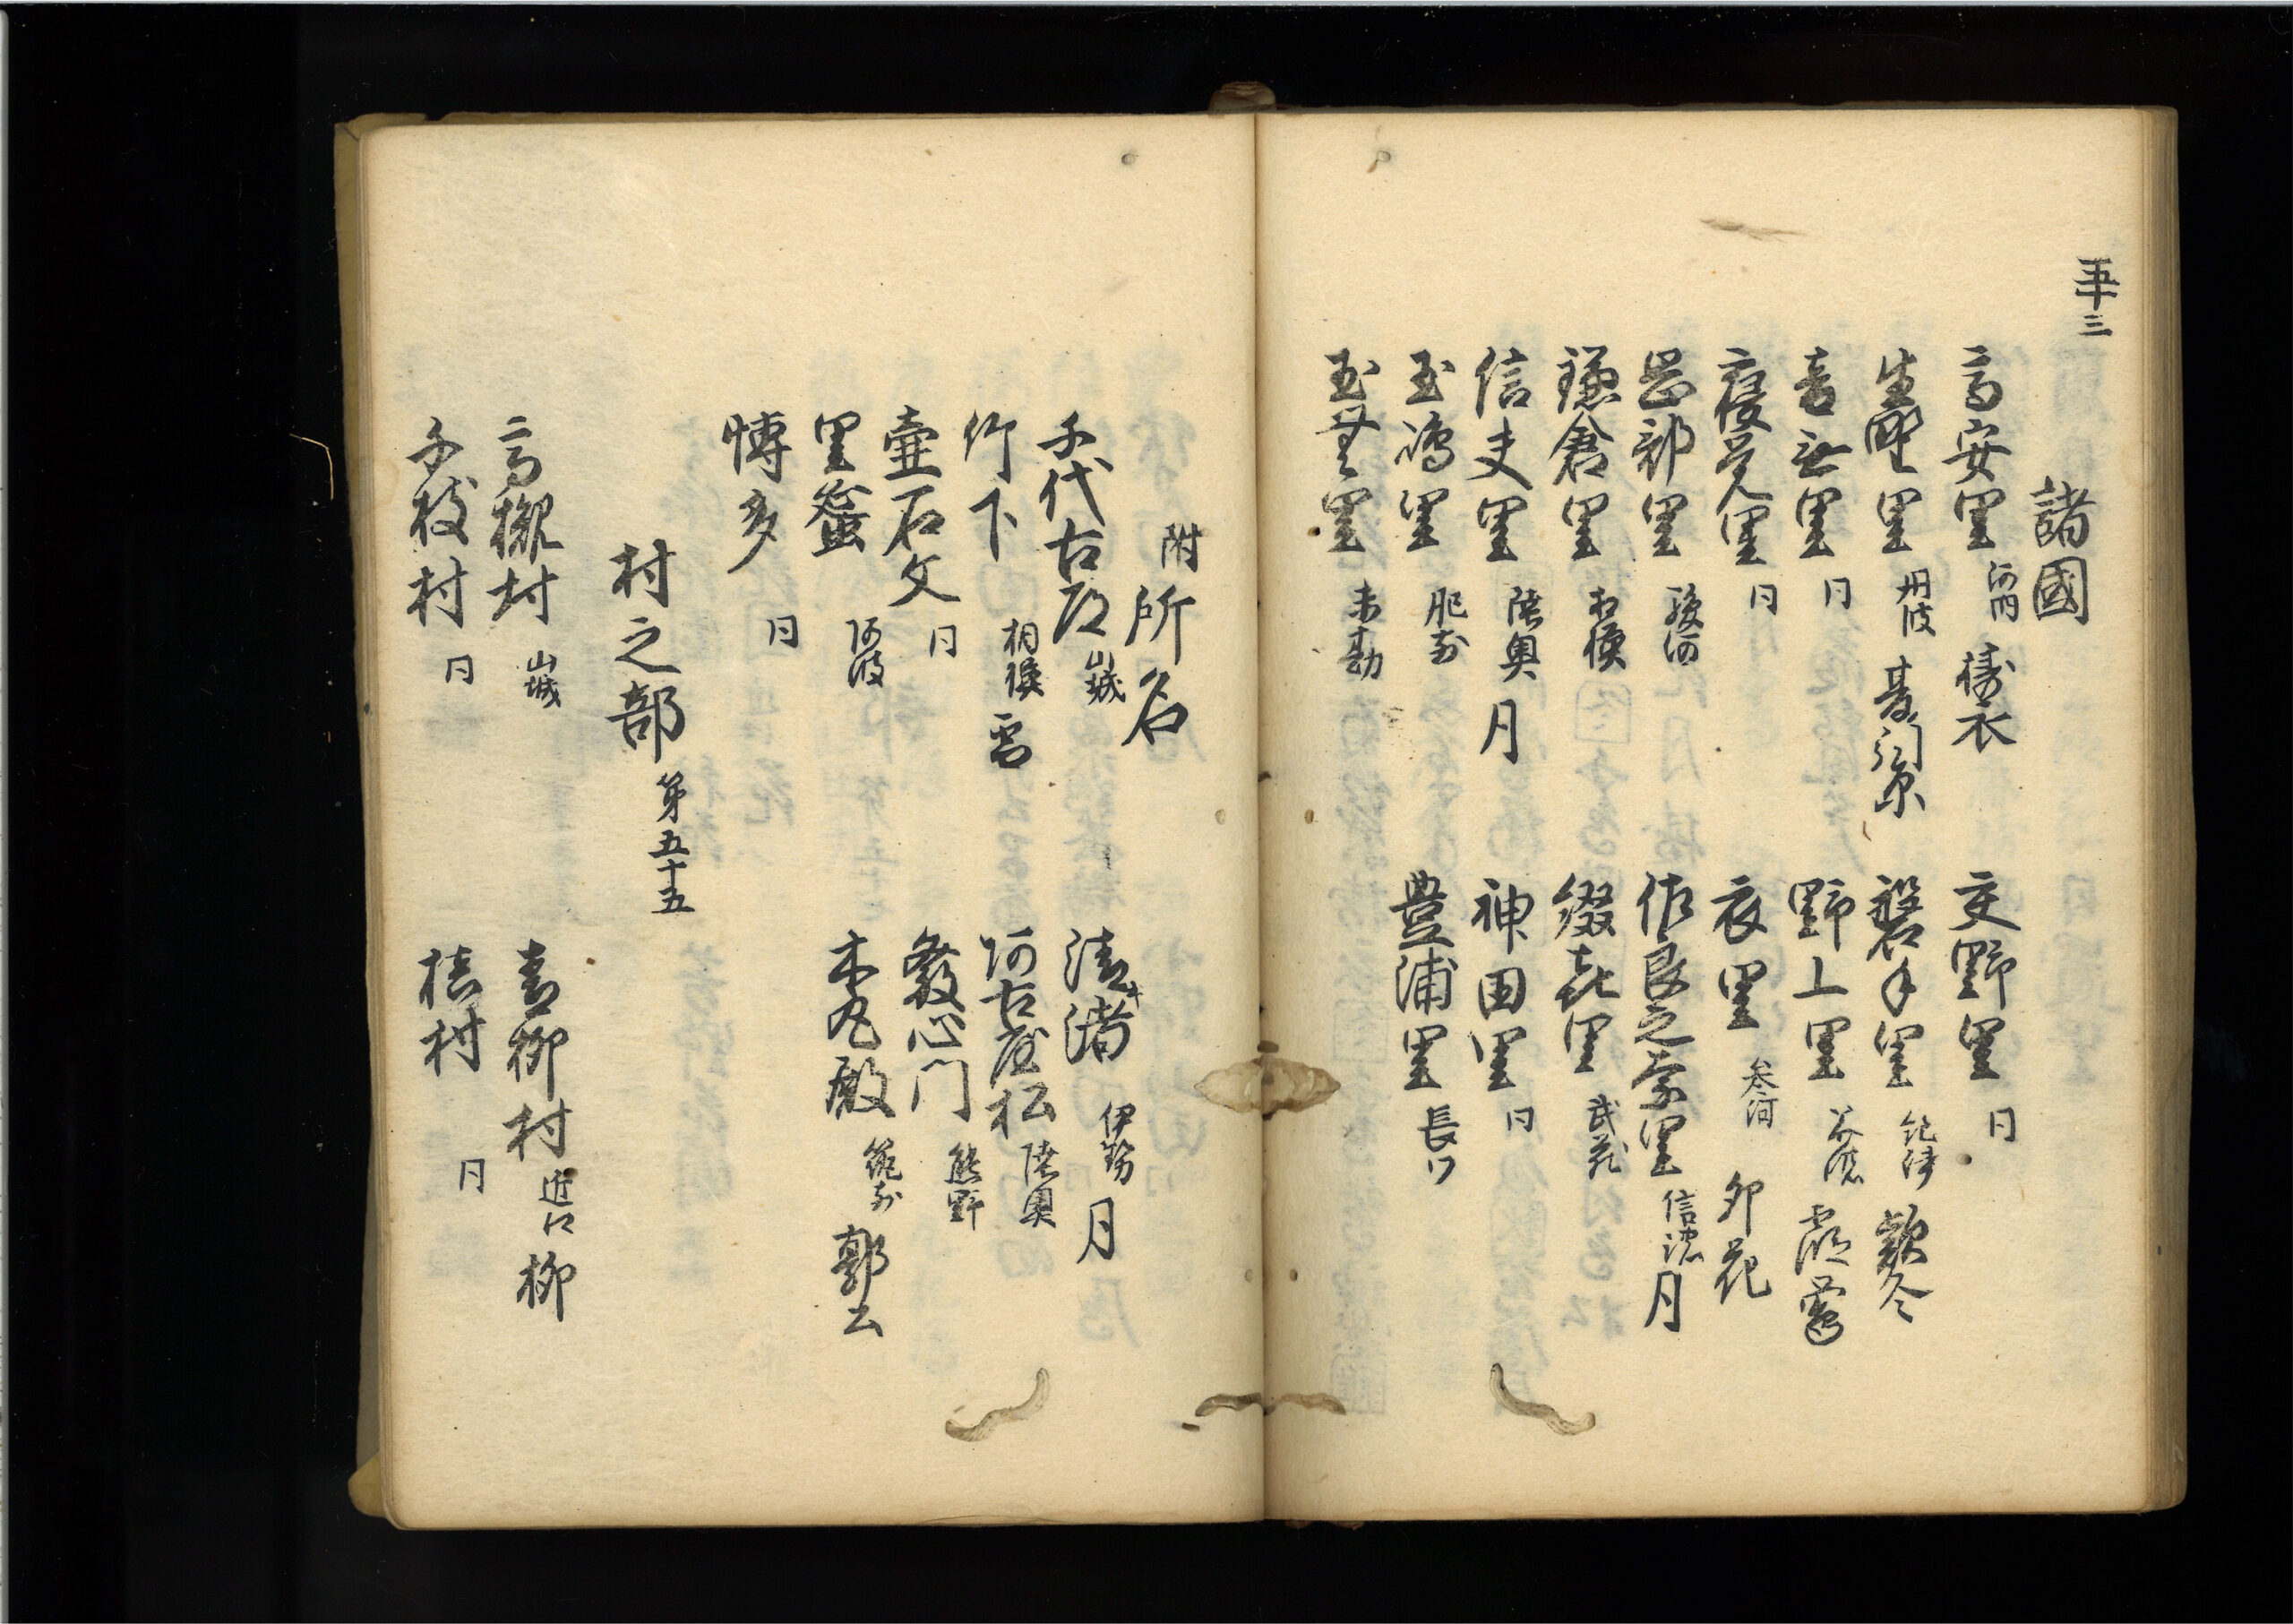 五十三
諸國
高安里 河内 擣衣
交野里 同
生野里 丹波
磐手里 紀伊 欵冬
音無里 同
野上里 美濃 霞 鶯
寝覚里 同
衣里 参河 卯花
岡部里 駿河
佐良之奈里 信濃 月
鎌倉里 相模
綴喜里 武蔵
信夫里 陸奥 月
神田里 同
玉嶋里 肥前
豊浦里 長門
玉葉里 未勘
附所名
千代古道 山城
清渚 伊勢 月
竹下 相模 雪
阿古屋松 陸奥
壷石文 同
発心門 熊野
里蜑 阿波
木丸殿 筑前 郭公
博多 同
村之部 第五十五
高槻村 山城
青柳村 近江 柳
千枝村 同
桂村 同